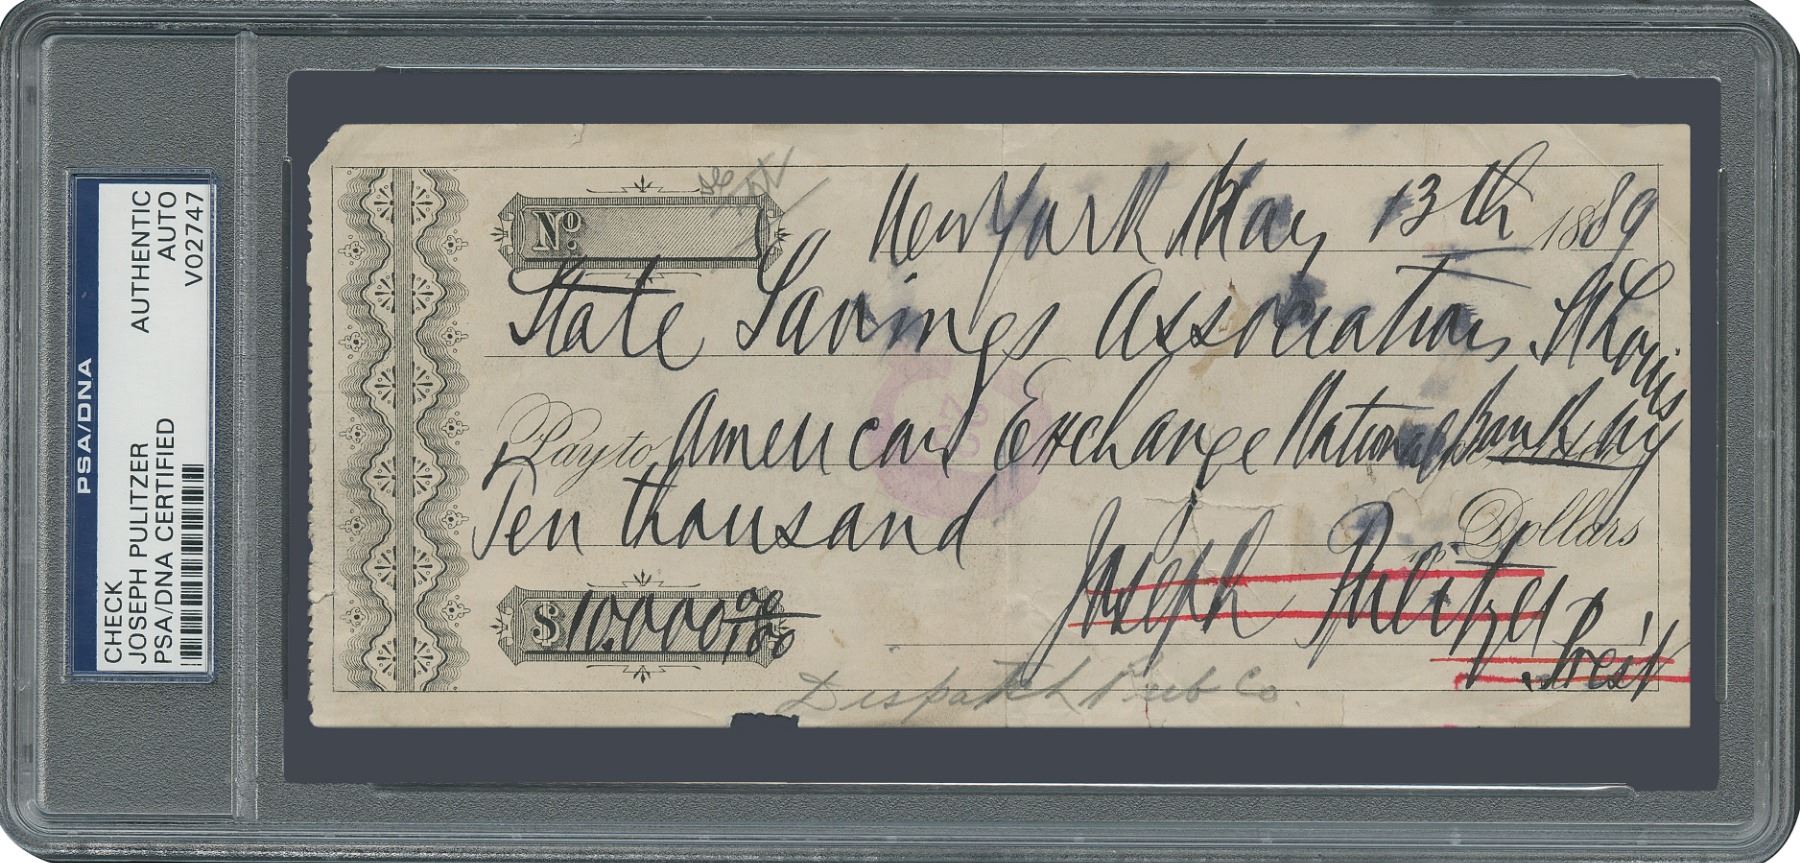 PSA/DNA
CHECK
JOSEPH PULITZER
PSA/DNA CERTIFIED
AUTHENTIC
AUTO
V02747
No.
New York May 13th 1889
State Savings Association St Louis
Pay to American Exchange National Bank NY
Ten thousand Dollars
$10.000 00/100
Joseph Pulitzer
Prest
Dispatch Pub Co.